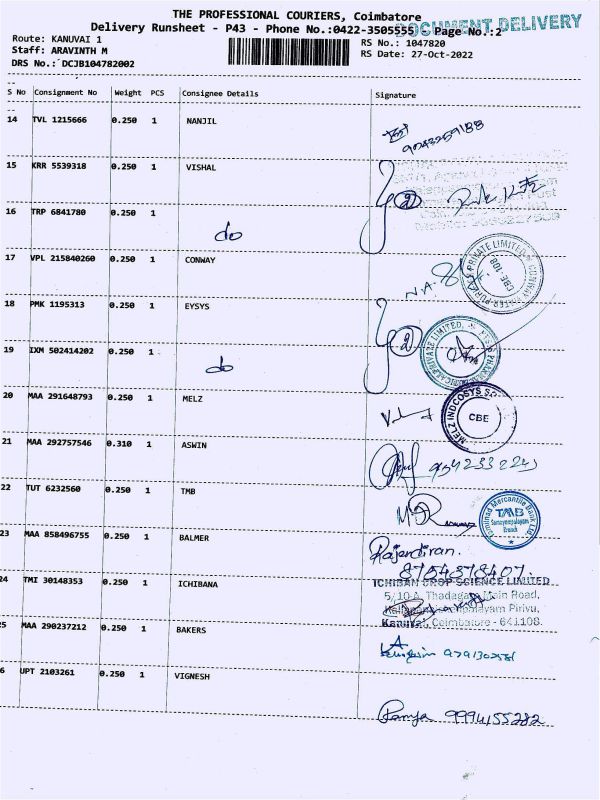 THE PROFESSIONAL COURIERS, Coimbatore
DOCUMENT DELIVERY
Delivery Runsheet - P43 - Phone No.:0422-3505555 - Page No.:2
Route: KANUVAI 1
RS No.: 1047820
Staff: ARAVINTH M
RS Date: 27-Oct-2022
DRS No.: DCJB104782002
S No Consignment No Weight PCS Consignee Details Signature
14 TVL 1215666 0.250 1 NANJIL
15 KRR 5539318 0.250 1 VISHAL
2
16 TRP 6841780 0.250 1
do
17 VPL 215840260 0.250 1 CONWAY
N.A.
PRIVATE LIMITED
CBE-108
18 PMK 1195313 0.250 1 EYSYS
2
19 IXM 502414202 0.250 1
do
20 MAA 291648793 0.250 1 MELZ
MELZ INDCOSYS
CBE
21 MAA 292757546 0.310 1 ASWIN
22 TUT 6232560 0.250 1 TMB
Mercantile Bank
TMB
Branch
23 MAA 858496755 0.250 1 BALMER
Rajendiran.
8754378407
24 TMI 30148353 0.250 1 ICHIBANA
ICHIBAN CROP SCIENCE LIMITED
5/10-A, Thadagam Main Road,
Pirivu,
Kanuvai, Coimbatore - 641 108.
5 MAA 290237212 0.250 1 BAKERS
6 UPT 2103261 0.250 1 VIGNESH
Ramya 9994155282